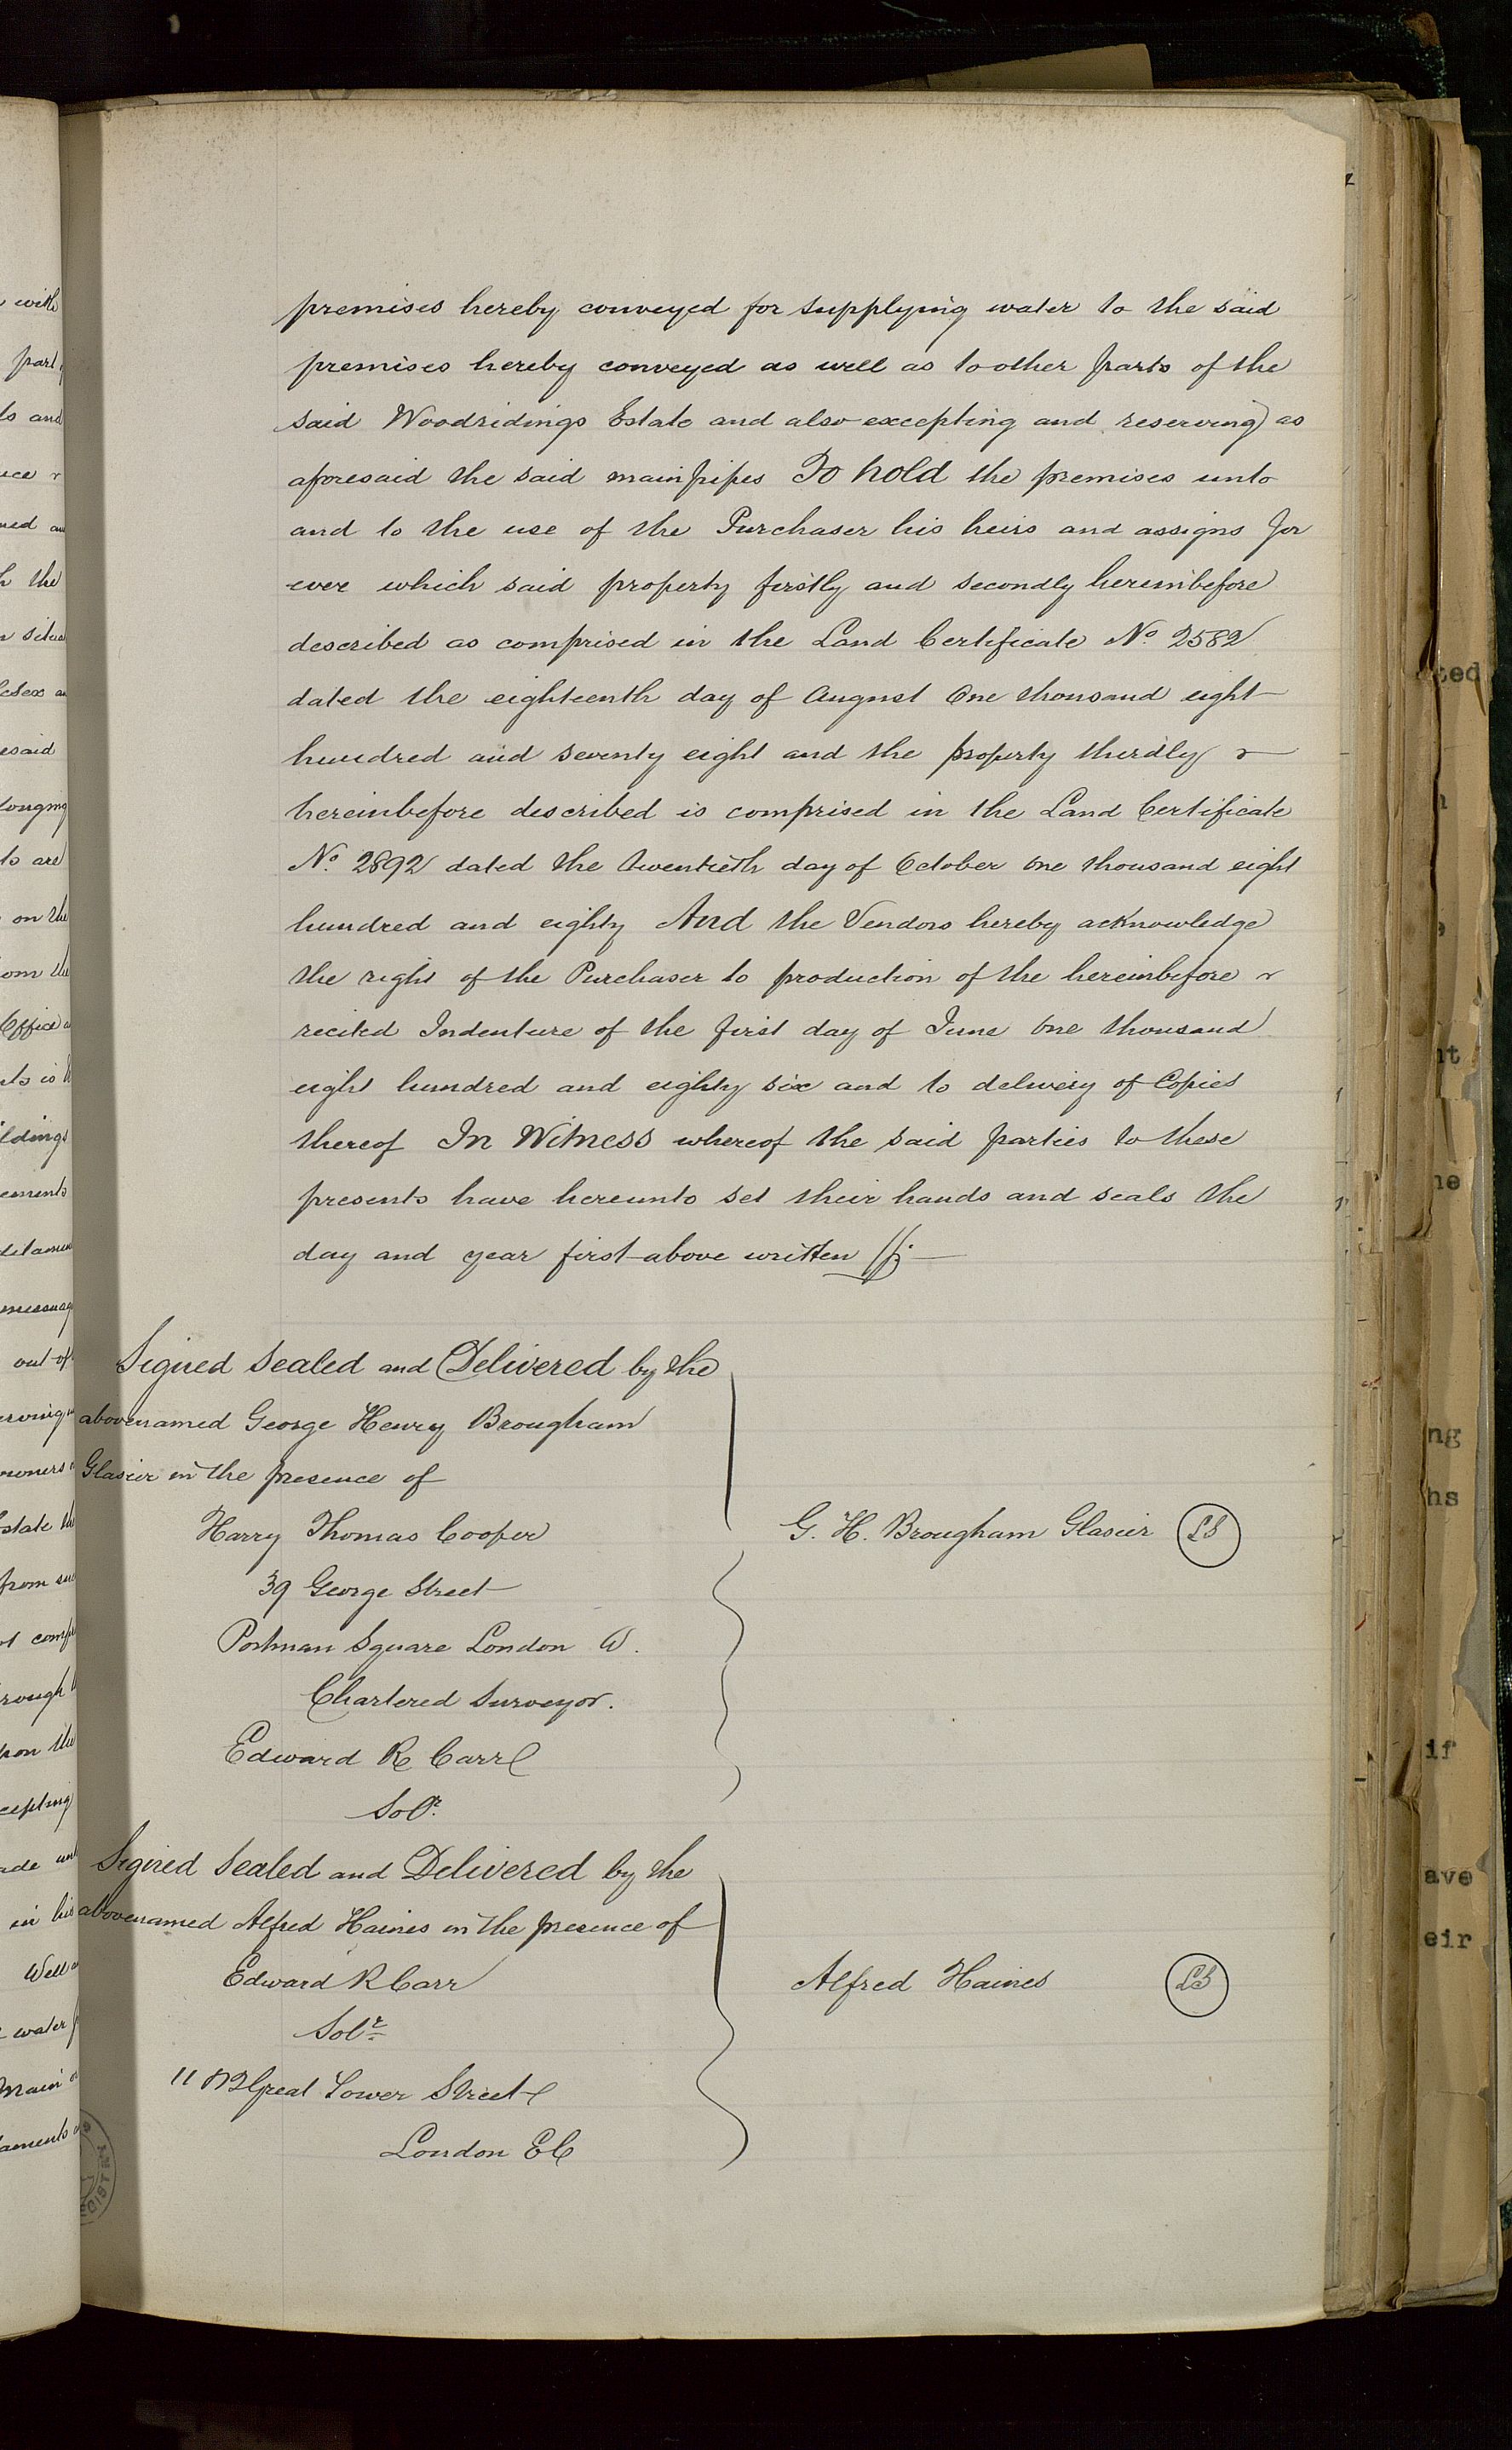 premises hereby conveyed for supplying water to the said
premises hereby conveyed as well as to other parts of the
said Woodridings Estate and also excepting and reserving) as
aforesaid the said main pipes To hold the premises unto
and to the use of the Purchaser his heirs and assigns for
ever which said property firstly and secondly hereinbefore
described as comprised in the Land Certificate No. 2582
dated the eighteenth day of August One thousand eight
hundred and seventy eight and the property thirdly
hereinbefore described is comprised in the Land Certificate
No. 2892 dated the twentieth day of October one thousand eight
hundred and eighty And the Vendors hereby acknowledge
the right of the Purchaser to production of the hereinbefore
recited Indenture of the first day of June one thousand
eight hundred and eighty six and to delivery of Copies
thereof In Witness whereof the said parties to these
presents have hereunto set their hands and seals the
day and year first above written
Signed sealed and Delivered by the
abovenamed George Henry Brougham
Glasier in the presence of
Harry Thomas Cooper
G. H. Brougham Glasier LS
39 George Street
Portman Square London W.
Chartered Surveyor.
Edward R Carr
Solr.
Signed sealed and Delivered by the
abovenamed Alfred Haines in the presence of
Edward R Carr
Alfred Haines LS
Solr.
11 Great Tower Street
London EC